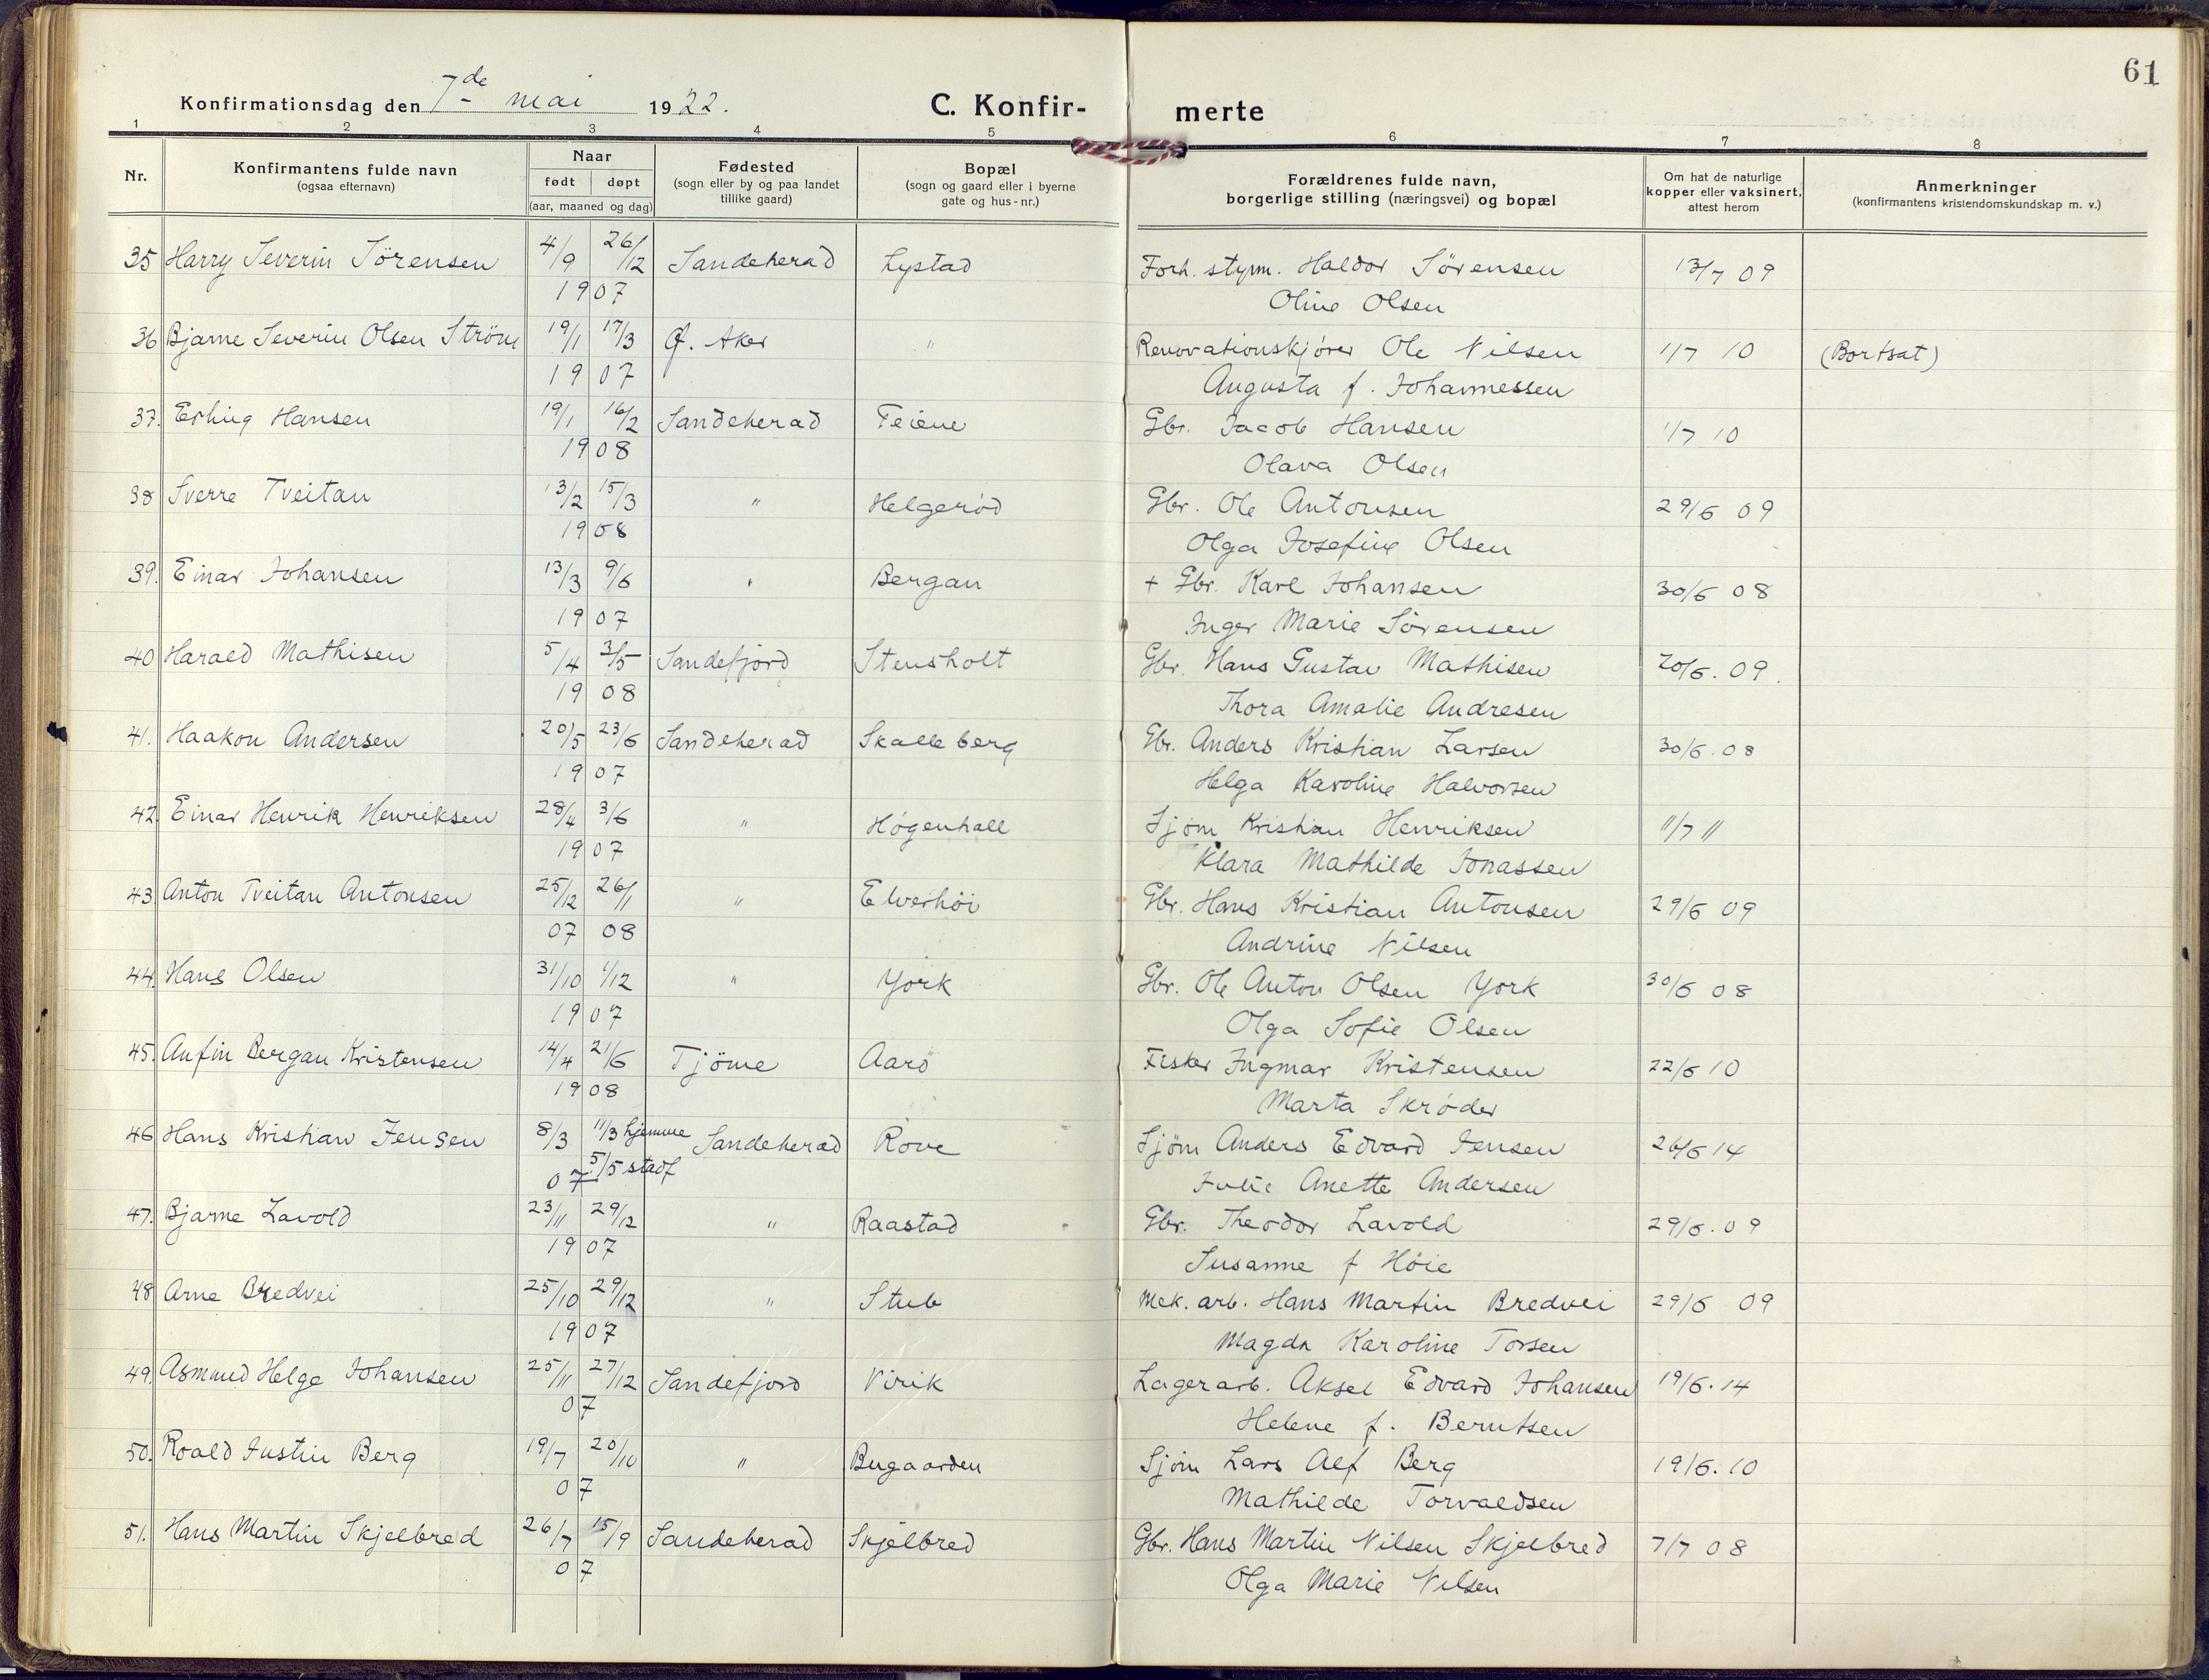 61
Konfirmationsdag den 7de mai 1922. C. Konfirmerte
1 2 3 4 5 6 7 8
Nr. Konfirmantens fulde navn (ogsaa efternavn) Naar født døpt (aar, maaned og dag) Fødested (sogn eller by og paa landet tillike gaard) Bopæl (sogn og gaard eller i byerne gate og hus-nr.) Forældrenes fulde navn, borgerlige stilling (næringsvei) og bopæl Om hat de naturlige kopper eller vaksinert, attest herom Anmerkninger (konfirmantens kristendomskundskap m. v.)
35 Harry Severin Sörensen 4/9 26/12 Sandeherad Lystad Forh. styrm. Haldor Sörensen 13/7 09
1907 Oline Olsen
36 Bjarne Severin Olsen Ström 19/1 17/3 Aker " Renovationskjörer Ole Nilsen 1/7 10 (Bortsat)
1907 Augusta f. Johannessen
37. Erling Hansen 19/1 16/2 Sandeherad Feiene Gbr. Jacob Hansen 1/7 10
1908 Olava Olsen
38 Sverre Tveitan 13/2 15/3 " Helgeröd Gbr. Ole Antonsen 29/6 09
1908 Olga Josefine Olsen
39. Einar Johansen 13/3 9/6 " Bergan + Gbr. Karl Johansen 30/6 08
1907 Inger Marie Sörensen
40 Harald Mathisen 5/4 3/5 Sandefjord Stensholt Gbr. Hans Gustav Mathisen 20/6. 09.
1908 Thora Amalie Andresen
41. Haakon Andersen 20/5 23/6 Sandeherad Skalleberg Gbr. Anders Kristian Larsen 30/6. 08
1907 Helga Karoline Halvorsen
42 Einar Henrik Henriksen 28/4 3/6 " Högenhall Sjöm Kristian Henriksen 11/7 11
1907 Klara Mathilde Jonassen
43. Anton Tveitan Antonsen 25/12 26/1 " Elverhöi Gbr. Hans Kristian Antonsen 29/6 09
07 08 Andrine Nilsen
44. Hans Olsen 31/10 1/12 " York Gbr. Ole Anton Olsen York 30/6 08
1907 Olga Sofie Olsen
45. Anfin Bergan Kristensen 14/4 21/6 Tjöme Aarö Fisker Ingmar Kristensen 22/6 10
1908 Marta Skröder
46 Hans Kristian Jensen 8/3 11/3 hjemme Sandeherad Rove Sjöm Anders Edvard Jensen 26/6 14
07 5/5 stadf Julie Anette Andersen
47. Bjarne Lavold 23/11 29/12 " Raastad Gbr. Theodor Lavold 29/6. 09
1907 Susanne f Höie
48 Arne Bredvei 25/10 29/12 " Stub Mek. arb. Hans Martin Bredvei 29/6 09
1907 Magda Karoline Torsen
49. Asmund Helge Johansen 25/11 27/12 Sandefjord Virik Lagerarb. Aksel Edvard Johansen 19/6. 14
07 Helene f. Berntsen
50. Roald Justin Berg 19/7 20/10 " Bugaarden Sjöm Lars Alf Berg 19/6. 10
07 Mathilde Torvaldsen
51. Hans Martin Skjelbred 26/7 15/9 Sandeherad Skjelbred Gbr. Hans Martin Nilsen Skjelbred 7/7 08
07 Olga Marie Nilsen